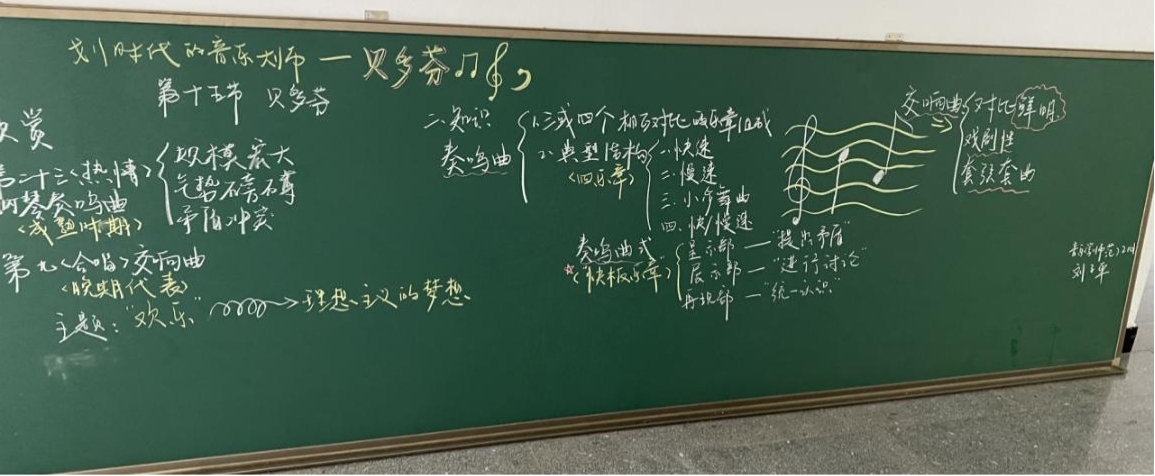 划时代的音乐大师—贝多芬
第十五节 贝多芬
欣赏
第二十三《热情》
钢琴奏鸣曲
《成熟时期》
规模宏大
气势磅礴
矛盾冲突
第九《合唱》交响曲
《晚期代表》
主题："欢乐" 理想主义的梦想
二、知识
奏鸣曲
1.三或四个相互对比的乐章组成
2.典型结构
《四乐章》
一.快速
二.慢速
三.小步舞曲
四.快/慢速
奏鸣曲式
☆《快板乐章》
呈示部—"提出矛盾"
展示部—"进行讨论"
再现部—"统一认识"
交响曲
对比鲜明
戏剧性
套弦套曲
刘